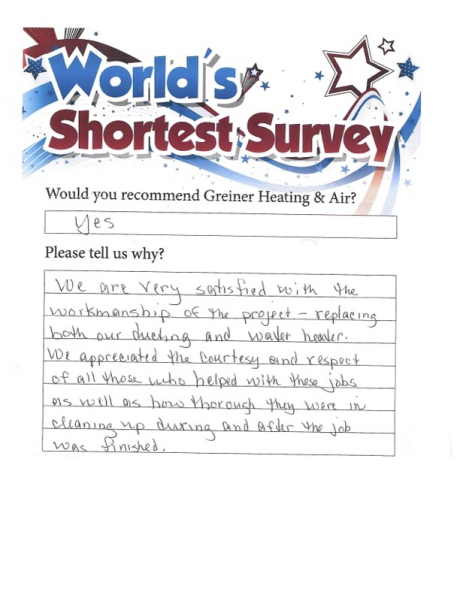 World's
Shortest Survey
Would you recommend Greiner Heating & Air?
yes
Please tell us why?
We are very satisfied with the
workmanship of the project - replacing
both our ducting and water heater.
We appreciated the courtesy and respect
of all those who helped with these jobs
as well as how thorough they were in
cleaning up during and after the job
was finished.